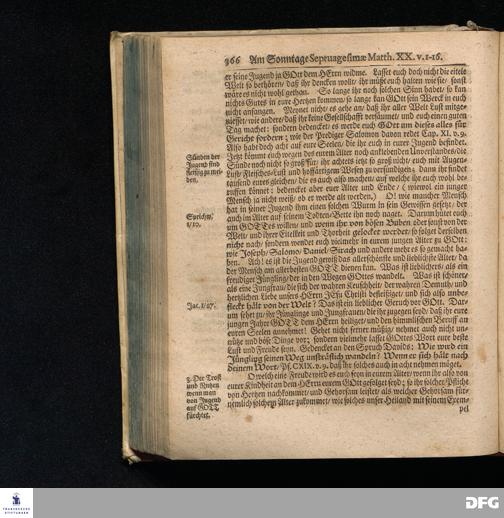 366 Am Sonntage Septuagesimæ Matth. XX. v. 1-16.
er seine Jugend ja GOtt dem HErrn widme. Lasset euch doch nicht die eitele
Welt so bethören/ daß ihr dencken wollt/ ihr müßt euch halten wie sie/ sonst
wäre es nicht wohl gethan. So lange ihr noch solchen Sinn habet/ so kan
nichts Gutes in eure Hertzen kommen/ so lange kan GOtt sein Werck in euch
nicht anfangen. Meynet nicht/ es gehe an/ daß ihr aller Welt Lust mitge-
niesset/ wie andere/ daß ihr keine Gesellschafft versäumet/ und euch einen guten
Tag machet: sondern bedencket/ es werde euch GOtt um dieses alles für
Gericht fordern; wie der Prediger Salomon davon redet Cap. XI. v. 9.
Also habt doch acht auf eure Seelen/ die ihr euch in eurer Jugend befindet.
Sünden der
Jugend sind
fleißig zu mei-
den.
Jetzt kömmt euch wegen des eurem Alter noch anklebenden Unverstandes/ die
Sünde noch nicht so groß für/ ihr achtets jetzt so groß nicht/ euch mit Augen-
Lust/ Fleisches-Lust und hoffärtigem Wesen zu versündigen; dann ihr findet
tausend eures gleichen/ die es auch also machen/ auf welche ihr euch wohl be-
ruffen könnet: bedencket aber euer Alter und Ende/ (wiewol ein junger
Mensch ja nicht weiß/ ob er werde alt werden.) O! wie mancher Mensch
hat in seiner Jugend ihm einen solchen Wurm in sein Gewissen gesetzt/ der
Sprichw.
1/10.
auch im Alter auf seinem Todten-Bette ihn noch naget. Darum hütet euch
um GOttes willen/ und wenn ihr von bösen Buben oder sonst von der
Welt/ und ihrer Eitelkeit und Thorheit gelocket werdet/ so folget derselben
nicht nach/ sondern wendet euch vielmehr in eurem jungen Alter zu GOtt:
wie Joseph/ Salomo/ Daniel/ Sirach und andere mehr es so gemacht ha-
ben. Ach! es ist die Jugend gewiß das allerschönste und lieblichste Alter/ da
der Mensch am allerbesten GOTT dienen kan. Was ist lieblichers/ als ein
freudiger Jüngling/ der in den Wegen GOttes wandelt. Was ist schöners/
als eine Jungfrau/ die sich der wahren Keuschheit/ der wahren Demuth/ und
hertzlichen Liebe unsers HErrn JEsu Christi befleißiget/ und sich also unbe-
Jac. 1/27.
fleckt hält von der Welt? Das ist ein lieblicher Geruch vor GOtt. Dar-
um sehet zu/ ihr Jünglings und Jungfrauen/ die ihr zugegen seyd/ daß ihr eure
jungen Jahre GOTT dem HErrn heiliget/ und den himmlischen Beruff an
euren Seelen annehmet! Gehet nicht ferner müßig/ nehmet auch nicht un-
nütze und böse Dinge vor; sondern vielmehr lasset GOttes Wort eure beste
Lust und Freude seyn. Gedencket an den Spruch Davids: Wie wird ein
Jüngling seinen Weg unsträflich wandeln? Wenn er sich hält nach
deinem Wort/ Ps. CXIX. v. 9. daß ihr solches auch in acht nehmen möget.
3. Der Trost
und Nutzen
wenn man
von Jugend
auf GOTT
fürchtet.
O welch eine Freude wird es euch seyn in eurem Alter/ wenn ihr also von
eurer Kindheit an dem HErrn eurem GOtt gefolget seyd; so ihr solcher Pflicht
von Hertzen nachkommet/ und Gehorsam leistet/ als welcher Gehorsam für-
nemlich solchem Alter zukommet/ wie solches unser Heiland mit seinem Exem-
pel
FRANCKESCHE
STIFTUNGEN
DFG